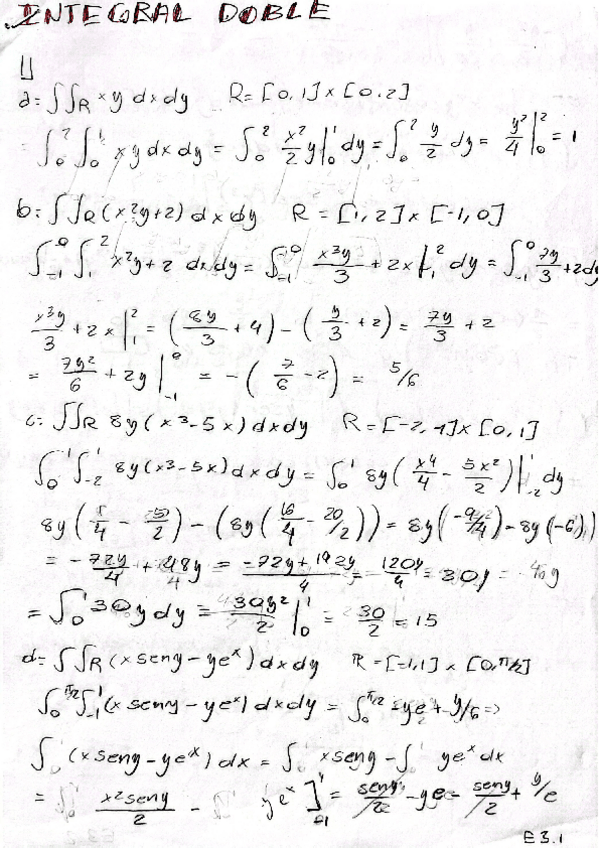 INTEGRAL DOBLE
1)
a= ∫∫R xy dxdy R=[0,1]x[0,2]
∫₀² ∫₀¹ xy dx dy = ∫₀² x²/2 y|₀¹ dy = ∫₀² y/2 dy = y²/4|₀² = 1
b= ∫∫R (x²y+2) dxdy R = [1,2]x[-1,0]
∫₋₁⁰ ∫₁² x²y+2 dxdy = ∫₋₁⁰ x³y/3 + 2x|₁² dy = ∫₋₁⁰ 7y/3 + 2dy
x³y/3 + 2x|₁² = (8y/3 + 4) - (y/3 + 2) = 7y/3 + 2
= 7y²/6 + 2y|₋₁⁰ = -(7/6 - 2) = 5/6
c= ∫∫R 8y(x³-5x) dxdy R=[-2,-1]x[0,1]
∫₀¹ ∫₋₂⁻¹ 8y(x³-5x) dxdy = ∫₀¹ 8y(x⁴/4 - 5x²/2)|₋₂⁻¹ dy
8y(1/4 - 5/2) - (8y(16/4 - 20/2)) = 8y(-9/4) - 8y(-6)
= -72y/4 + 48y = -72y + 192y/4 = 120y/4 = 30y
= ∫₀¹ 30y dy = 30y²/2|₀¹ = 30/2 = 15
d= ∫∫R (x seny - yeˣ) dxdy R=[-1,1]x[0,π/2]
∫₀^π/2 ∫₋₁¹ (x seny - yeˣ) dxdy = ∫₀^π/2 -ye + y/e =>
∫ (x seny - yeˣ) dx = ∫ x seny - ∫ yeˣ dx
= x² seny/2 - yeˣ]₋₁¹ = seny/2 - ye - seny/2 + y/e
E3.1